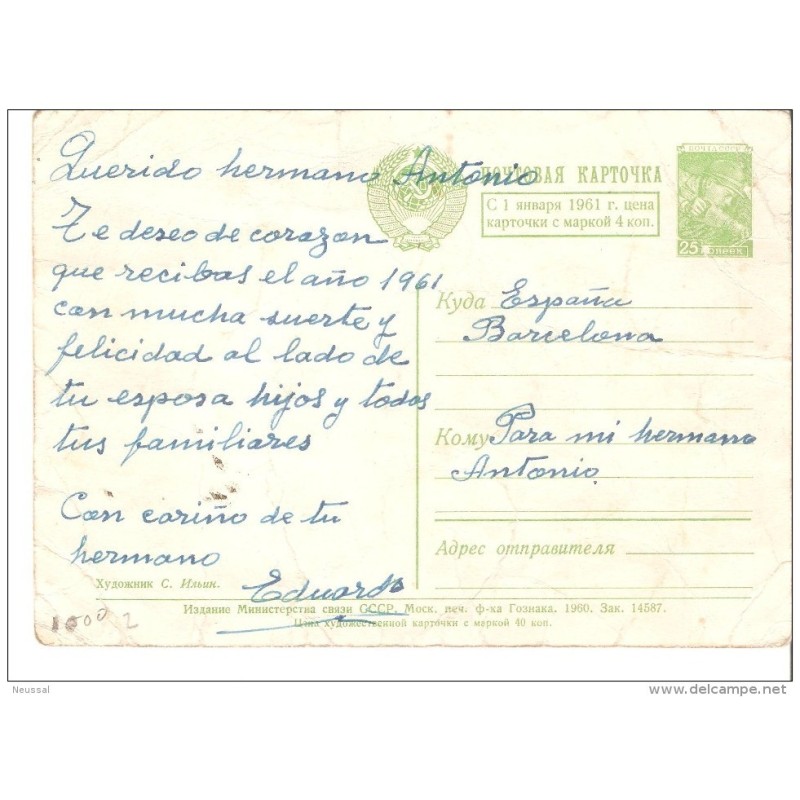 Querido hermano Antonio
Te deseo de corazon
que recibas el año 1961
con mucha suerte y
felicidad al lado de
tu esposa hijos y todos
tus familiares
Con cariño de tu
hermano
Eduardo
Художник С. Ильин.
1500 2
ПОЧТОВАЯ КАРТОЧКА
С 1 января 1961 г. цена
карточки с маркой 4 коп.
ПОЧТА СССР
25 копеек
Куда España
Barcelona
Кому Para mi hermano
Antonio
Адрес отправителя
Издание Министерства связи СССР. Моск. печ. ф-ка Гознака. 1960. Зак. 14587.
Цена художественной карточки с маркой 40 коп.
Neussal
delcampe.net